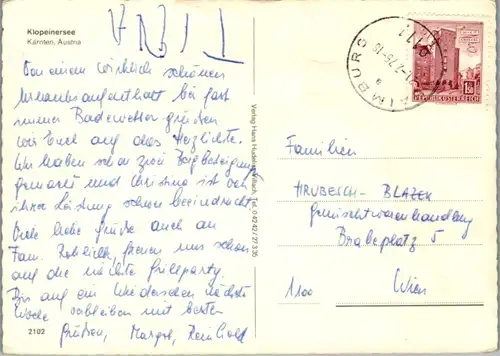 Klopeinersee
Kärnten, Austria
Von einem wirklich schönen
Urlaubsaufenthalt bei fast
immer Badewetter grüßen
wir Euch auf das Herzlichste.
Wir haben schon zwei Bergbesteigungen
gemacht und Christine ist von
ihrer Leistung schon beeindruckt.
Viele liebe Grüße auch an
Fam. freuen uns schon
auf die nächste Grillparty.
Bis auf ein Wiedersehen nächste
Woche verbleiben mit besten
Grüßen, Margot, Reinhold
2102
Verlag Hans Tel. 042 42 / 27 3 35
REPUBLIK ÖSTERREICH
Familien
HRUBESCH - BLAZEK
Gemischtwarenhandlung
5
1100 Wien